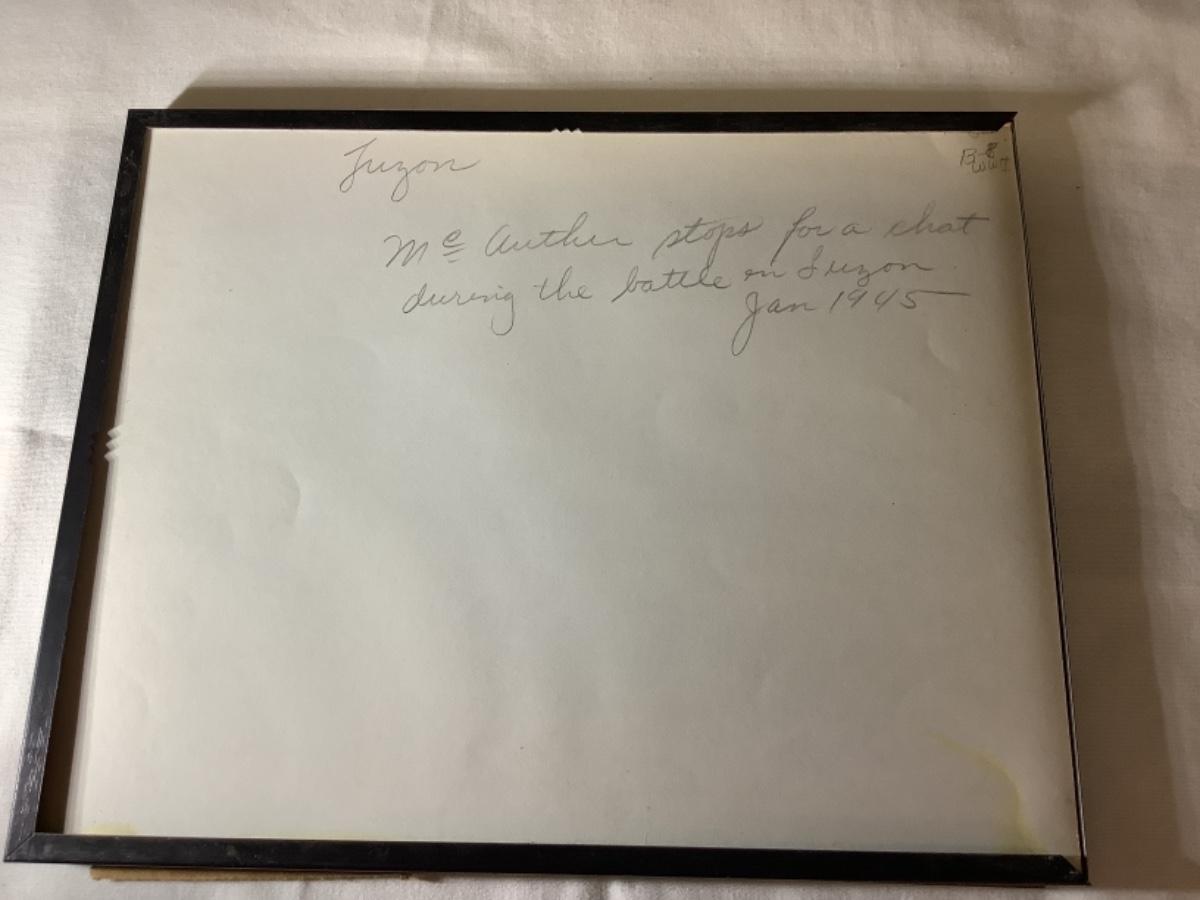 Luzon
B-8
WWI
Mc Auther stops for a chat
during the battle on Luzon
Jan 1945